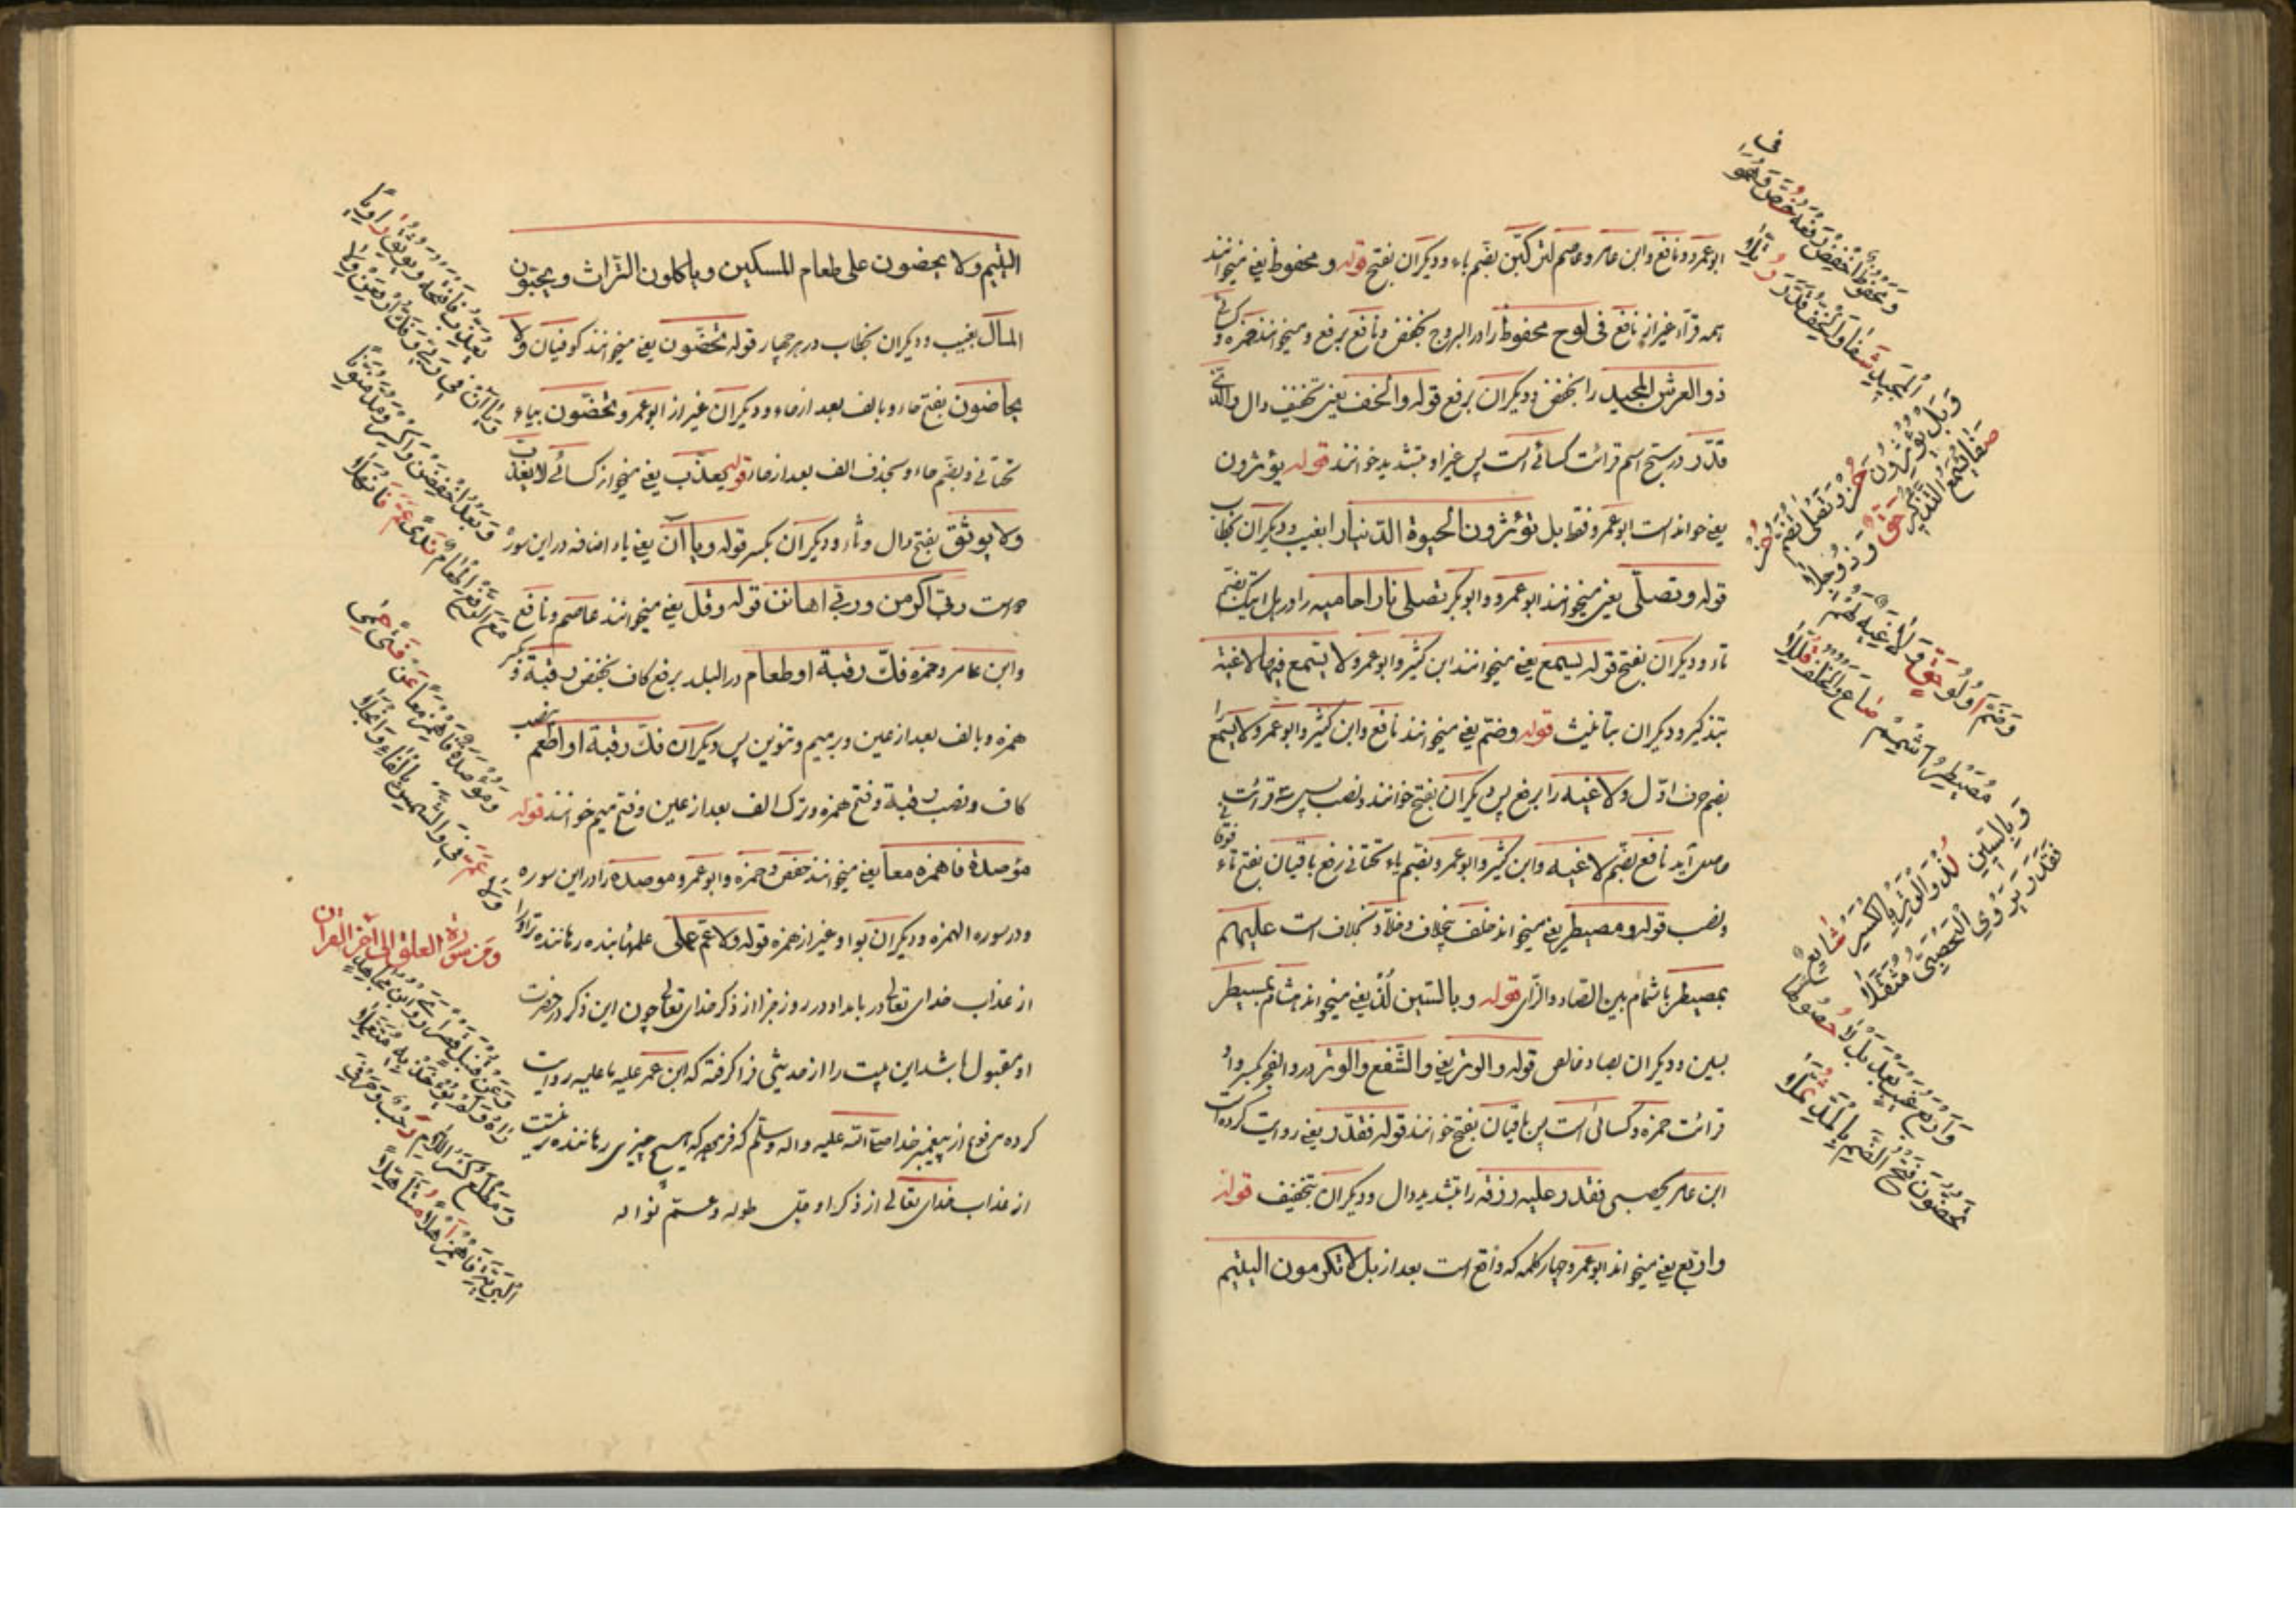 ابوعمرو و نافع و ابن عامر و عاصم لتركبن بضم باء و ديكران بفتح قوله و محفوظ يعني ميخوانند
همه قرآء غير از نافع في لوح محفوظ را در البروج بخفض و نافع برفع و ميخوانند حمزه و كسائي
ذو العرش المجيد را بخفض و ديكران برفع قوله والخف يعني تخفيف دال والذي
قدر در سبح اسم قرائت كسائي است پس غير او بتشديد خوانند قوله يؤثرون
يعني خوانده است ابوعمرو فقط بل تؤثرون الحيوة الدنيا را بغيب و ديكران بخطاب
قوله وتصلى يعني ميخوانند ابوعمرو و ابوبكر تصلى نارا حاميه را در هل اتيك بضم
تاء و ديكران بفتح قوله يسمع يعني ميخوانند ابن كثير و ابوعمرو لا يسمع فيها لاغية
بتذكير و ديكران بتأنيث قوله وضم يعني ميخوانند نافع و ابن كثير و ابوعمرو لا يسمع را
بضم حرف اول و لاغية را برفع پس ديكران بفتح خوانند و نصب پس سه قرائت
حاصل آيد نافع بضم لاغية و ابن كثير و ابوعمرو بضم ياء تحتاني و رفع باقيان بفتح تاء فوقاني
و نصب قوله و مصيطر يعني ميخواند خلف بخلاف و خلاد بخلاف است عليهم
بمصيطر باشمام بين الصاد والزاي قوله و بالسين لذ يعني ميخواند هشام بمسيطر
بسين و ديكران بصاد خالص قوله والوتر يعني والشفع والوتر در والفجر بكسر واو
قرائت حمزه و كسائي است پس باقيان بفتح خوانند قوله فقدر يعني روايت كرده است
ابن عامر يحصبي فقدر عليه رزقه را بتشديد دال و ديكران بتخفيف قوله
واربع يعني ميخواند ابوعمرو چهار كلمه كه واقع است بعد از بل لا تكرمون اليتيم
ومحفوظ اخفض رفعه خص وهو في
المجيد شفا والخف قدر رتلا
وبل يؤثرون حز وتصلى يضم حز
صفا يسمع التذكير حق وذو جلا
وضم اولو حق ولاغية لهم
مصيطر اشمم ضاع والخلف قللا
وبالسين لذ والوتر بالكسر شايع
فقدر يروي اليحصبي مثقلا
واربع غيب بعد بل لا حصولها
تحضون فتح الضم بالمد ثملا
اليتيم ولا يحضون على طعام المسكين وياكلون التراث ويحبون
المال بغيب و ديكران بخطاب در هر چهار قوله تحضون يعني ميخوانند كوفيان ولا
تحاضون بفتح حاء و بالف بعد از حاء و ديكران غير از ابوعمرو تحضون بياء
تحتاني و بضم حاء و بحذف الف بعد از حاء قوله يعذب يعني ميخواند كسائي لا يعذب
ولا يوثق بفتح ذال و ثاء و ديكران بكسر قوله وياآن يعني ياء اضافه در اين سوره
دو است ربي اكرمن و ربي اهانن قوله وفك يعني ميخوانند عاصم و نافع
و ابن عامر و حمزه فك رقبة او اطعام در البلد برفع كاف بخفض رقبة و بكسر
همزه و بالف بعد از عين و برميم و تنوين پس ديكران فك رقبة او اطعم بنصب
كاف و نصب رقبة و فتح همزه و ترك الف بعد از عين و فتح ميم خوانند قوله
مؤصدة فاهمزه معا يعني ميخوانند حفص و حمزه و ابوعمرو موصدة را در اين سوره
و در سوره الهمزه و ديكران بواو غير از همزه قوله ولا عم
از عذاب خداي تعالى در بامداد در روز جزا از ذكر خداي تعالى چون اين ذكر در حضرت
او مقبول باشد اين بيت را از حديثي فرا كرفته كه ابن عمر عليه ما عليه روايت
كرده مرفوع از پيغمبر خدا صلى الله عليه واله وسلم كه فرمود كه هيچ چيزي رهاننده تر نيست
از عذاب خداي تعالى از ذكر او جل طوله و عم نواله
يعذب فافتحه ويوثق راويا
وياآن في ربي وفك ارفعن ولا
وبعد اخفضن واكسر ومد منونا
مع الرفع اطعام ندى عم فانهلا
ومؤصدة فاهمز معا عن فتى حمى
ولا عم في والشمس بالفاء وانجلا
ومن سورة العلق الى آخر القرآن
وعن قنبل قصرا روى ابن مجاهد
رآه ولم يأخذ به متعملا
ومطلع كسر اللام رحب وحرفي
البرية فاهمز آهلا متأهلا